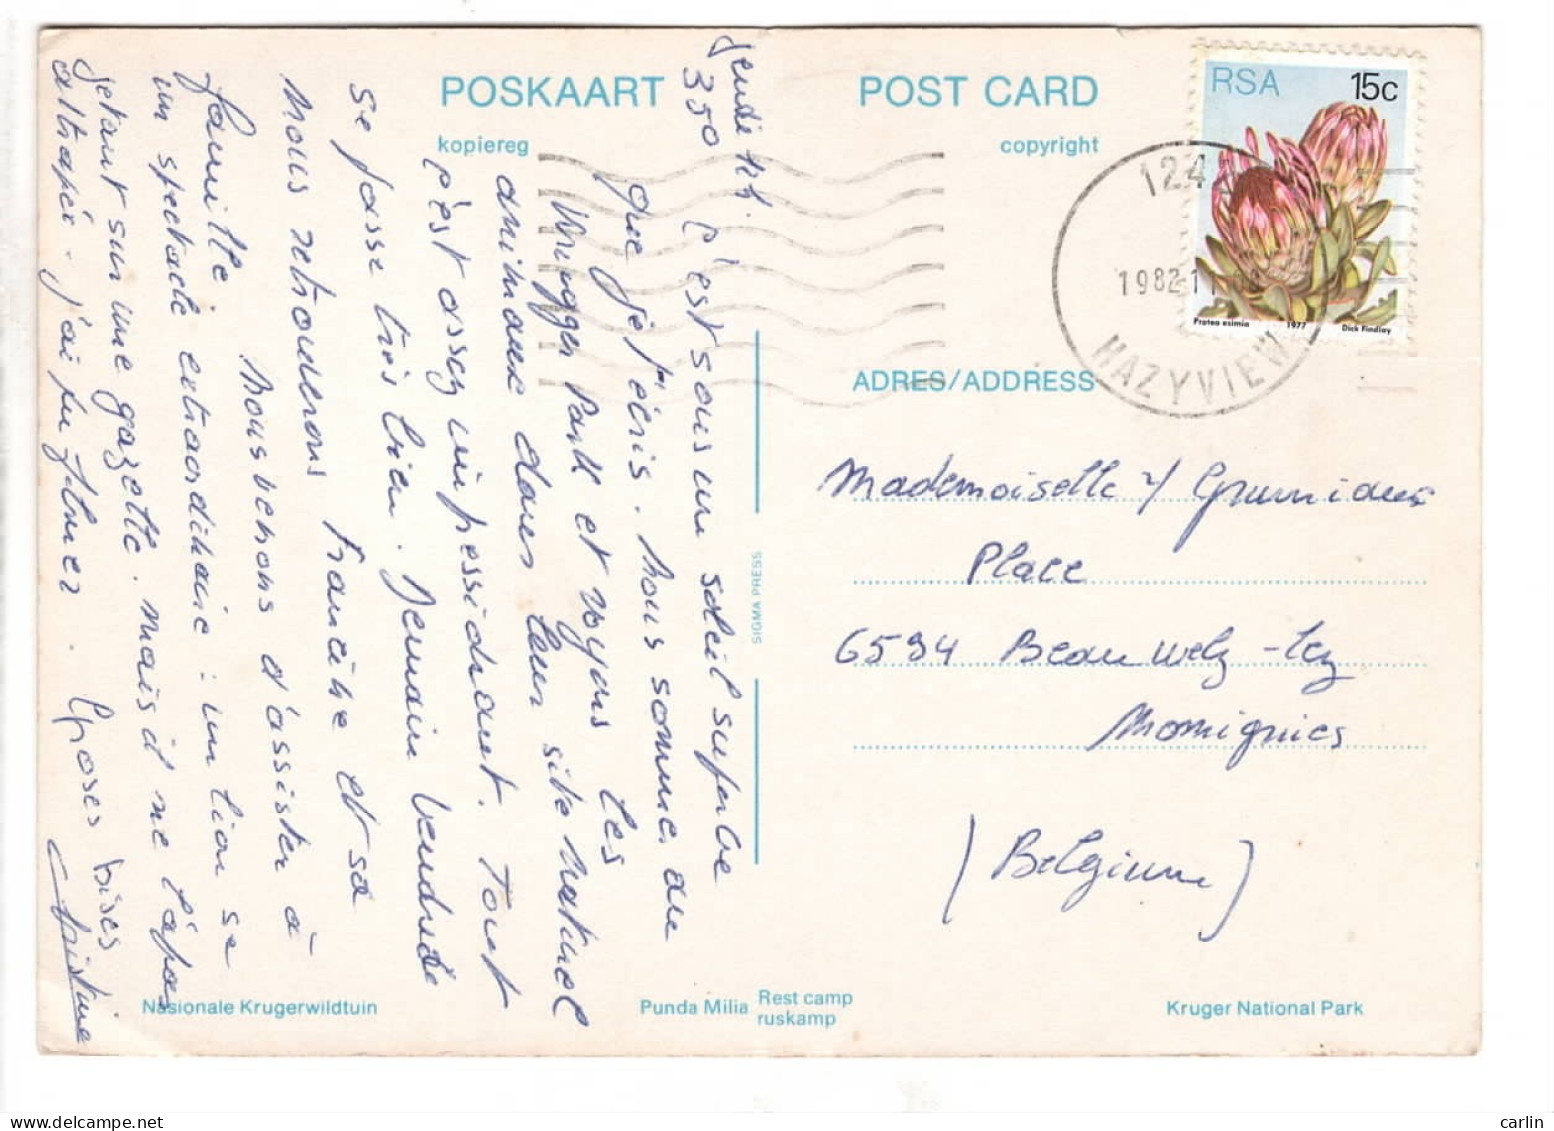 POSKAART
kopiereg
POST CARD
copyright
RSA 15c
Protea eximia 1977 Dick Findlay
124
1982-11
HAZYVIEW
ADRES/ADDRESS
Mademoiselle
Place
6594 Beauwelz-lez
Momignies
(Belgium)
SIGMA PRESS
Jeudi
350 C'est sous un soleil superbe
que je t'écris. Nous sommes au
Krugger Park et voyons les
animaux dans leur site naturel
c'est assez impressionnant. Tout
se passe très bien. Demain Vendredi
nous retrouverons Francine et sa
famille. Nous venons d'assister à
un spectacle extraordinaire : un lion se
jetant sur une gazelle. mais il ne l'a pas
attrapée. j'ai pu filmer. Grosses bises
Christine
Nasionale Krugerwildtuin
Punda Milia Rest camp
ruskamp
Kruger National Park
carlin